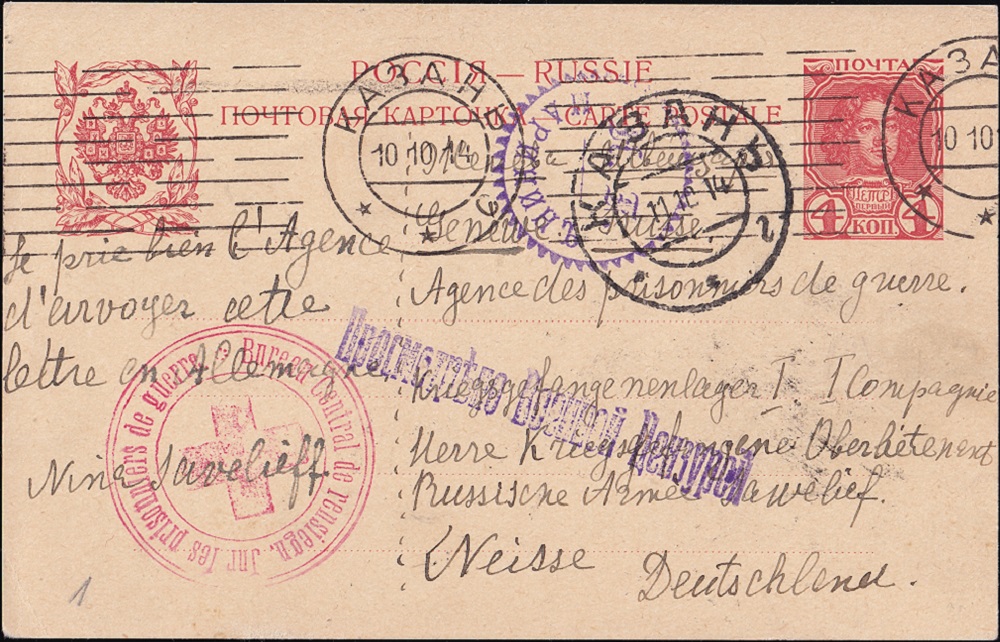 РОССІЯ — RUSSIE
ПОЧТОВАЯ КАРТОЧКА CARTE POSTALE
ПОЧТА
4 КОП. 4
КАЗАНЬ
10 10 14
КАЗАНЬ 2
КАЗА
10 10
Genève Suisse
Agence des prisonniers de guerre.
Kriegsgefangenenlager I I Compagnie
Herre Kriegsgefangene Oberleitenent
Russische Armee Sawelief.
Neisse
Deutschland.
Je prie bien l'Agence
d'envoyer cette
lettre en Allemagne
Nine Savelieff
Просмотрѣно Военной Цензурой
Bureau Central de renseign. sur les prisonniers de guerre
1